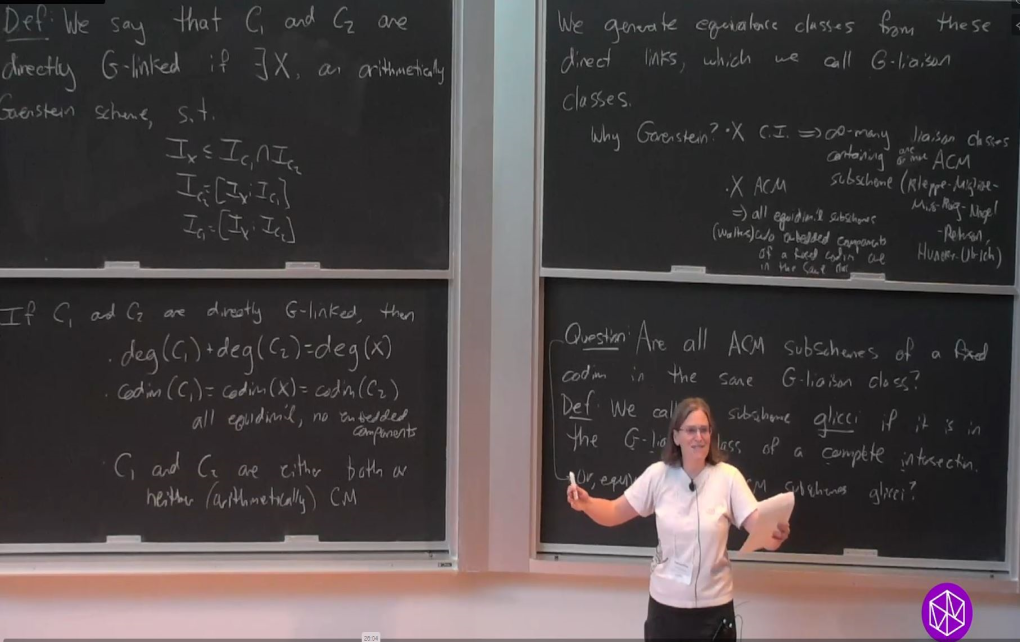 Def: We say that C₁ and C₂ are
directly G-linked if ∃X, an arithmetically
Gorenstein scheme, s.t.
I_X ⊆ I_C₁ ∩ I_C₂
I_C₂ = [I_X : I_C₁]
I_C₁ = [I_X : I_C₂]
If C₁ and C₂ are directly G-linked, then
· deg(C₁)+deg(C₂)=deg(X)
· codim(C₁)=codim(X)=codim(C₂)
all equidim'l, no embedded
components
C₁ and C₂ are either both or
neither (arithmetically) CM
We generate equivalence classes from these
direct links, which we call G-liaison
classes.
Why Gorenstein? · X C.I. ⇒ ∞-many liaison classes
containing ACM
subscheme (Kleppe-Migliore-
Miró-Roig-Nagel
-Peterson,
Huneke-Ulrich)
· X ACM
⇒ all equidim'l subschemes
(Walter) w/o embedded components
of a fixed codim are
in the same
Question: Are all ACM subschemes of a fixed
codim in the same G-liaison class?
Def: We call subscheme glicci if it is in
the G- of a complete intersection.
(or, subschemes glicci?
26:04